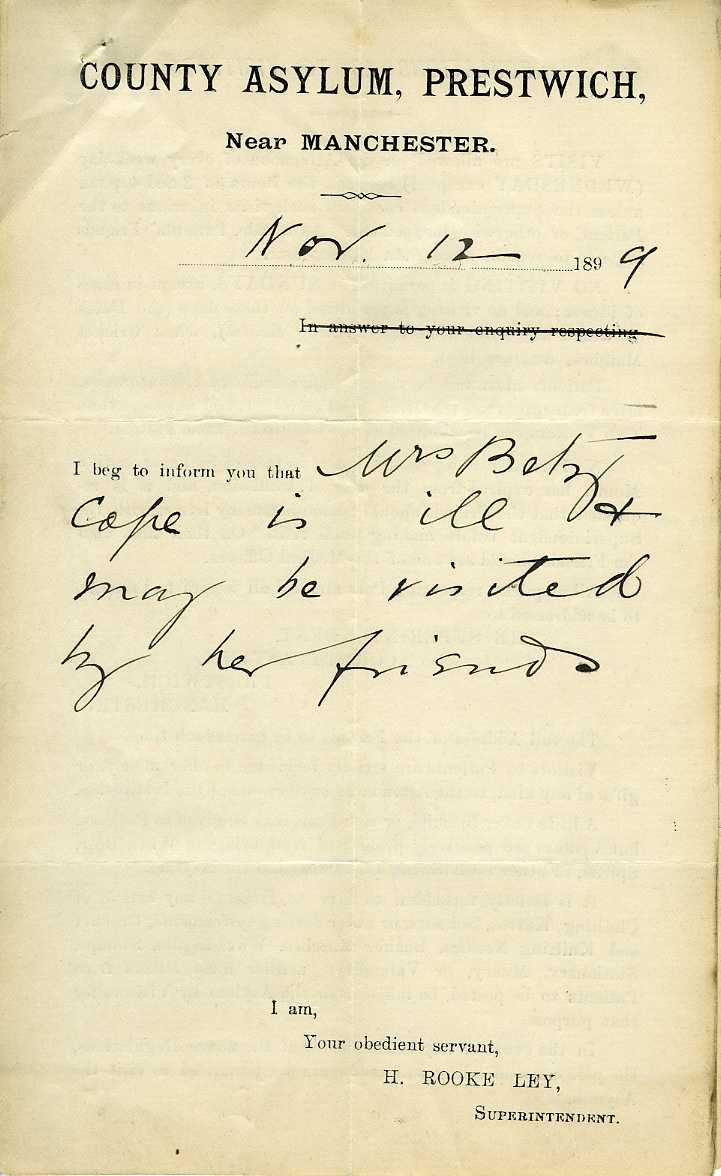 COUNTY ASYLUM, PRESTWICH,
Near MANCHESTER.
Nov. 12 1899
In answer to your enquiry respecting
I beg to inform you that Mrs Betsy
Cope is ill &
may be visited
by her friends
I am,
Your obedient servant,
H. ROOKE LEY,
SUPERINTENDENT.